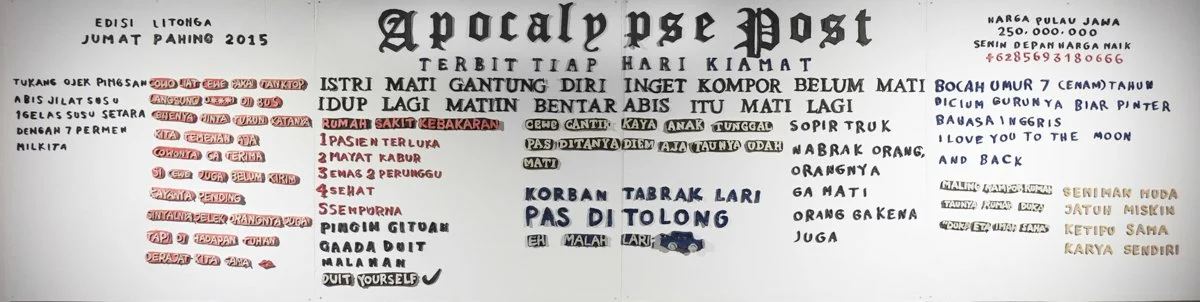 EDISI LITONGA
JUMAT PAHING 2015
Apocalypse Post
TERBIT TIAP HARI KIAMAT
HARGA PULAU JAWA
250.000.000
SENIN DEPAN HARGA NAIK
+6285693180666
TUKANG OJEK PINGSAN
ABIS JILAT SUSU
1 GELAS SUSU SETARA
DENGAN 7 PERMEN
MILKITA
COWO LIAT CEWE PAKAI TANKTOP
LANGSUNG DI BUS
CEWENYA MINTA TURUN KATANYA
KITA TEMENAN AJA
COWONYA GA TERIMA
SI CEWE JUGA BELUM KIRIM
KAYANYA PENDING
SINYALNYA JELEK ORANGNYA JUGA
TAPI DI HADAPAN TUHAN
DERAJAT KITA SAMA
ISTRI MATI GANTUNG DIRI INGET KOMPOR BELUM MATI
IDUP LAGI MATIIN BENTAR ABIS ITU MATI LAGI
RUMAH SAKIT KEBAKARAN
1 PASIEN TERLUKA
2 MAYAT KABUR
3 EMAS 2 PERUNGGU
4 SEHAT
5 SEMPURNA
PINGIN GITUAN
GAADA DUIT
MALAHAN
DUIT YOURSELF
CEWE CANTIK KAYA ANAK TUNGGAL
PAS DITANYA DIEM AJA TAUNYA UDAH
MATI
KORBAN TABRAK LARI
PAS DI TOLONG
EH MALAH LARI
SOPIR TRUK
NABRAK ORANG,
ORANGNYA
GA MATI
ORANG GA KENA
JUGA
BOCAH UMUR 7 (ENAM) TAHUN
DICIUM GURUNYA BIAR PINTER
BAHASA INGGRIS
I LOVE YOU TO THE MOON
AND BACK
MALING RAMPOK RUMAH
TAUNYA RUMAH DUKA
"DUKA ETA IMAH SAHA"
SENIMAN MUDA
JATUH MISKIN
KETIPU SAMA
KARYA SENDIRI